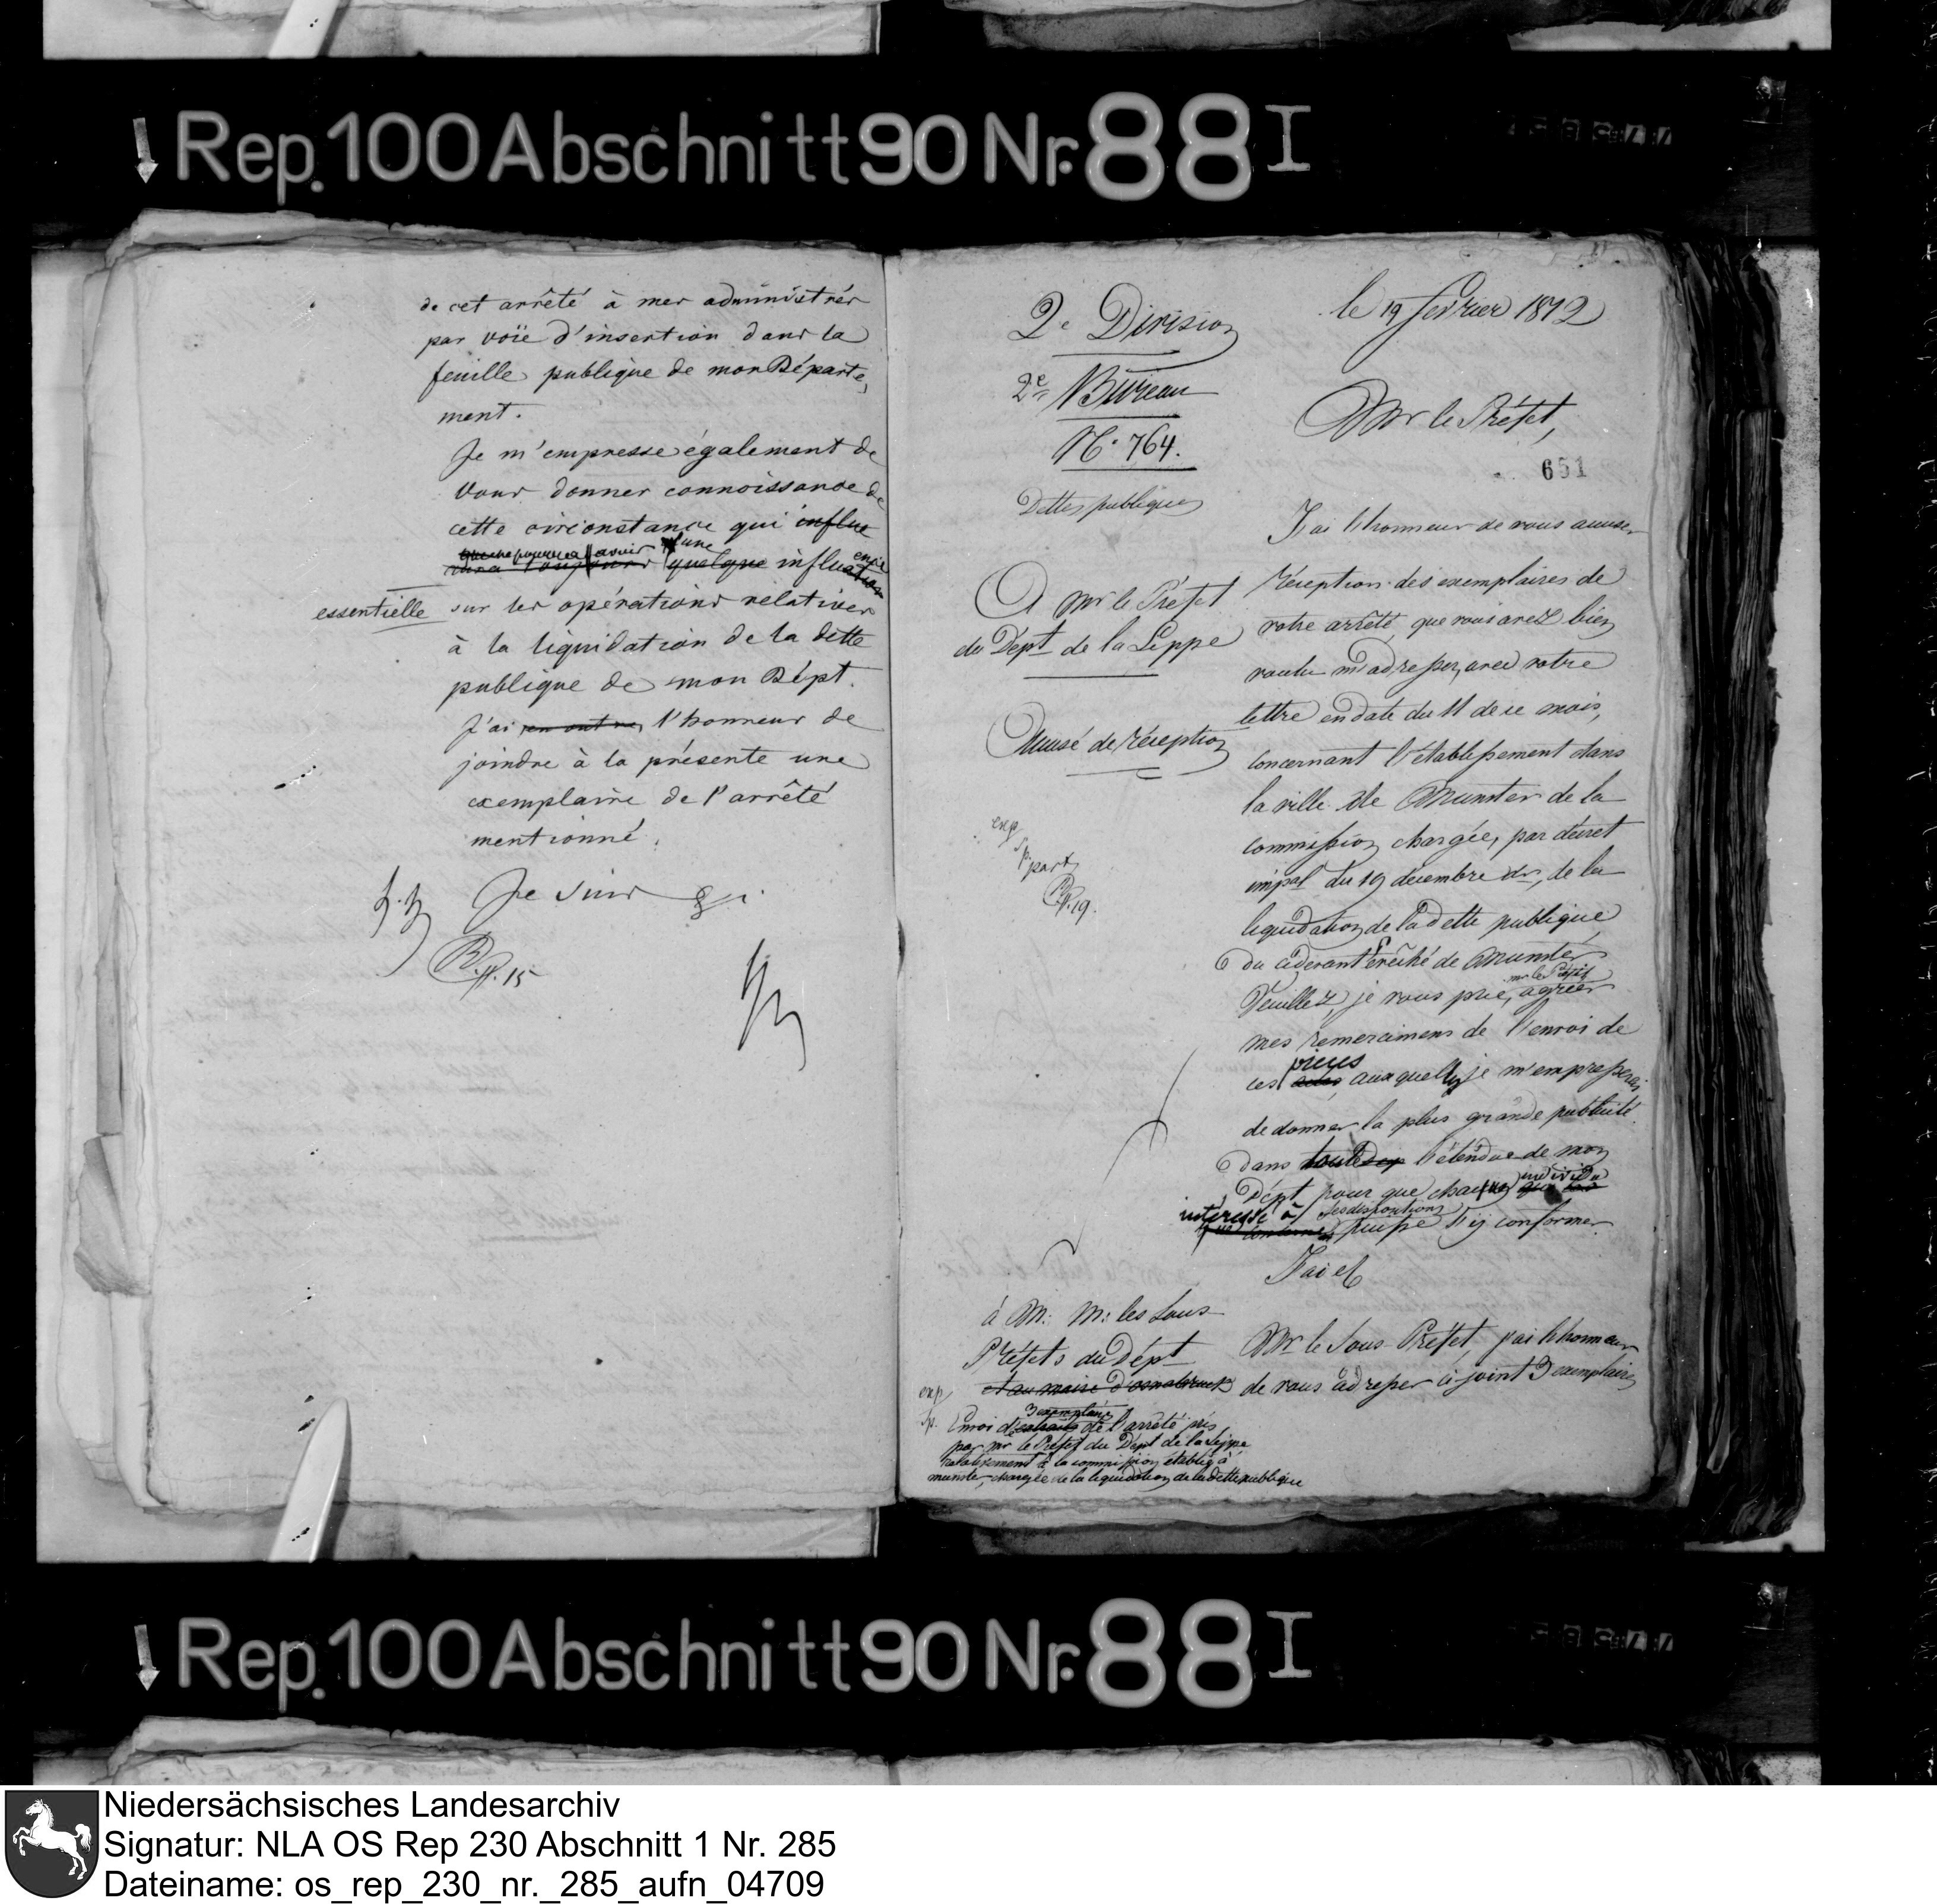 Rep. 100 Abschnitt 90 Nr. 88 I
de cet arrêté à mes administrés
par voïe d'insertion dans la
feuille publique de mon Départe,
ment.
Je m'empresse également de
vous donner connoissance de
cette circonstance qui influe
avoir une
quelque influence
essentielle sur les opérations relatives
à la liquidation de la dette
publique de mon Dépt.
J'ai en outre l'honneur de
joindre à la présente une
exemplaire de l'arrêté
mentionné.
Je suis
15
2e Division
2e Bureau
N° 764.
Dettes publiques
A Mr le Préfet
du Dépt de la Lippe
Accusé de réception
exp
19.
le 19 fevrier 1812
Mr le Préfet,
651
J'ai l'honneur de vous accuser
réception des exemplaires de
votre arrêté, que vous avez bien
voulu m'adresser, avec votre
lettre en date du 11 de ce mois,
concernant l'établissement dans
la ville de Munster de la
commission chargée, par décret
impal du 19 décembre dr, de la
liquidation de la dette publique
du cidevant Evêché de Munster
mr le Préfet
Veuillez, je vous prie, agréer
mes remercimens de l'envoi de
pièces
ces actes, auxquelles je m'empresserai
de donner la plus grande publicité
dans toute l'étendue de mon
individu
Dépt pour que chaque
intéressé à ses dispositions
puisse s'y conformer.
J'ai et
à M. M: les Sous
Préfets du Dépt
et au maire d'osnabruck
exp
3 exemplaires
Envoi d'extraits de l'arrêté pris
par mr le Préfet du Dépt de la Lippe
relativement à la commission établie à
munster, chargée de la liquidation de la dette publique
Mr le Sous-Préfet, j'ai l'honneur
de vous adresser ci joint 3 exemplaires
Rep. 100 Abschnitt 90 Nr. 88 I
Niedersächsisches Landesarchiv
Signatur: NLA OS Rep 230 Abschnitt 1 Nr. 285
Dateiname: os_rep_230_nr._285_aufn_04709